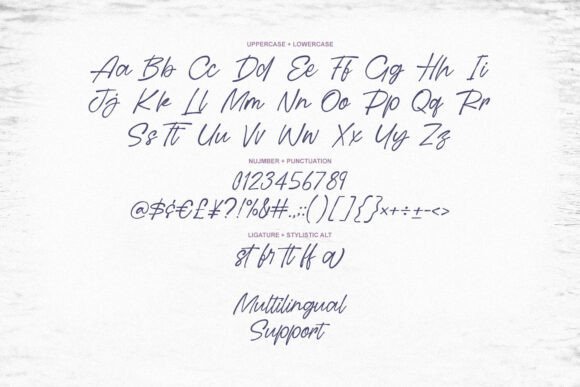 UPPERCASE + LOWERCASE
Aa Bb Cc Dd Ee Ff Gg Hh Ii
Jj Kk Ll Mm Nn Oo Pp Qq Rr
Ss Tt Uu Vv Ww Xx Yy Zz
NUJMBER + PUNCTUATION
0123456789
@$¢€£¥?!%&#.,;:()[]{}×+÷±-<>
LIGATURE + STYLISTIC ALT
st fr tt ff a
Multilingual
Support